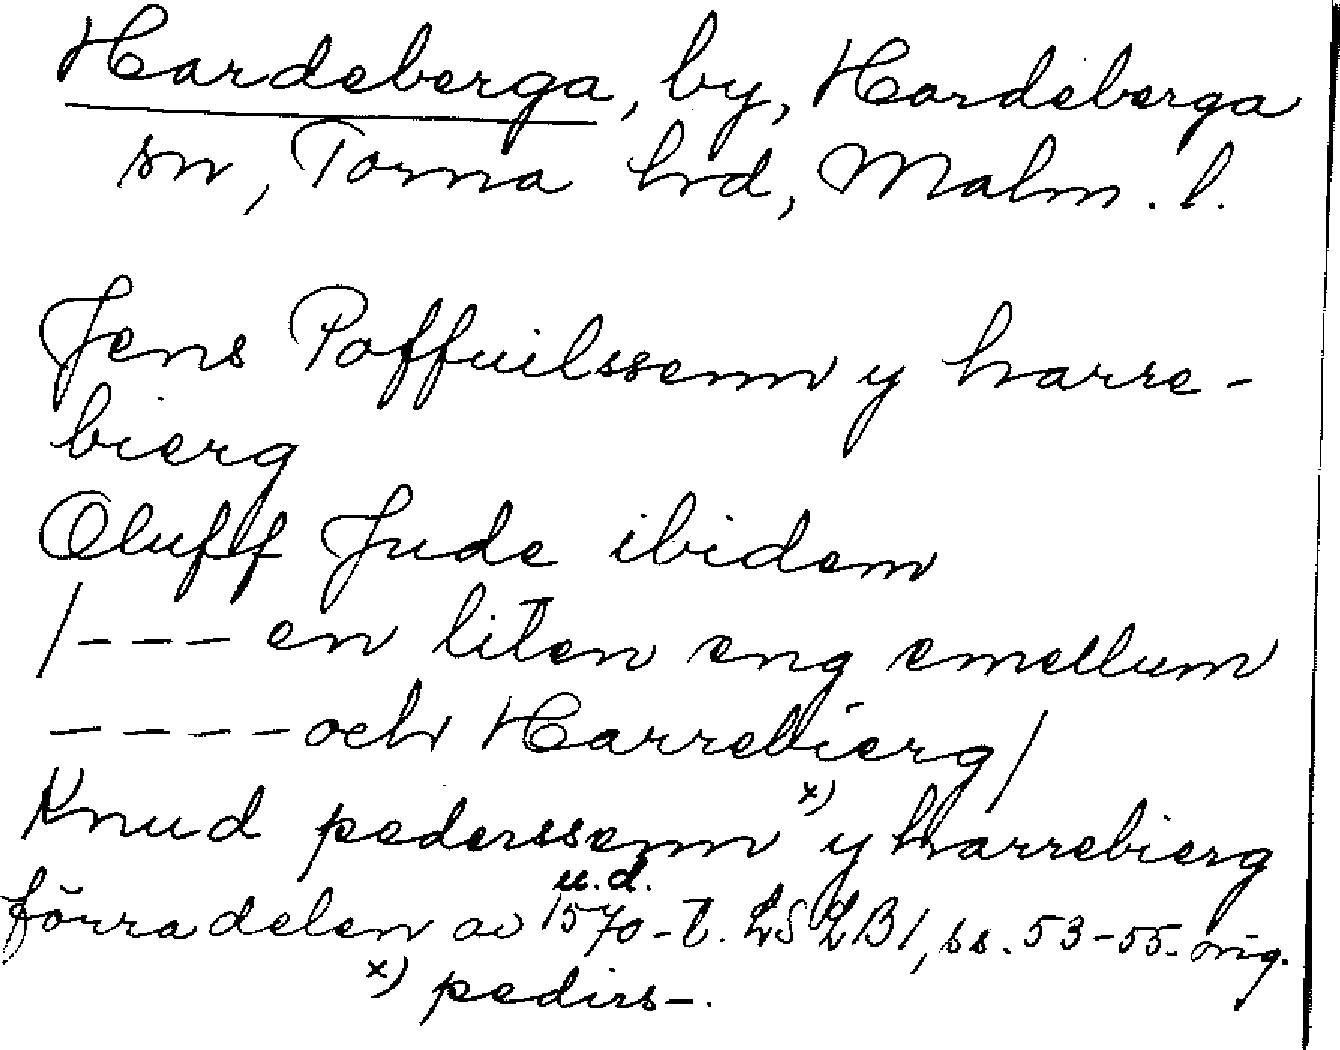 Hardeberga, by, Hardeberga
sn, Torna hrd, Malm. l.
Jens Poffuilssenn y harre-
bierg
Oluff Jude ibidem
/--- en liten eng emellum
---- och Harrebierg/
Knud pederssenn x) y harrebierg
u.d.
förra delen av 1570-t. LSLB1, ss. 53-55. orig.
x) pedirs-.